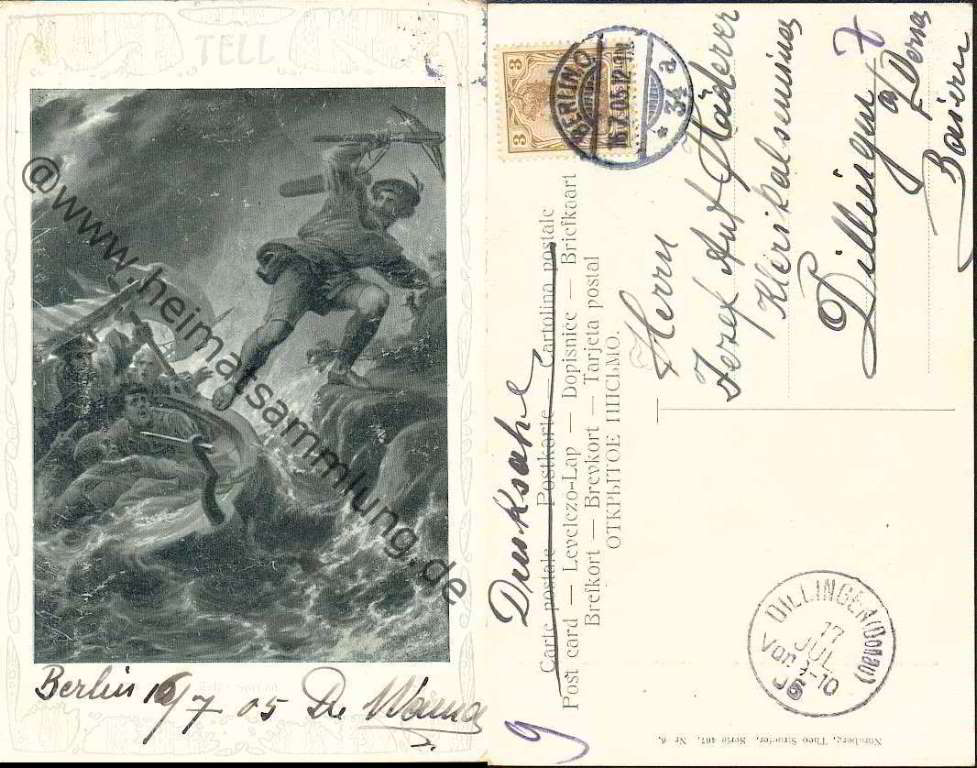 TELL
@www.heimatsammlung.de
Berlin 16/7 05
3
3
BERLIN.O.
16.7.05.12-1N
* 34 a
Druksahe
Carte postale — Postkarte — Cartolina postale
Post card — Levelezo-Lap — Dopisnice — Briefkaart
Brefkort — Brevkort — Tarjeta postal
ОТКРЫТОЕ ПИСЬМО.
Herrn
Josef Ant Häderer
Klerikalseminar
Dillingen a/
Baiern
DILLINGEN (Donau)
17
JUL
Vor 9-10
05
Nürnberg, Theo Stroefer, Serie 467, Nr 6.